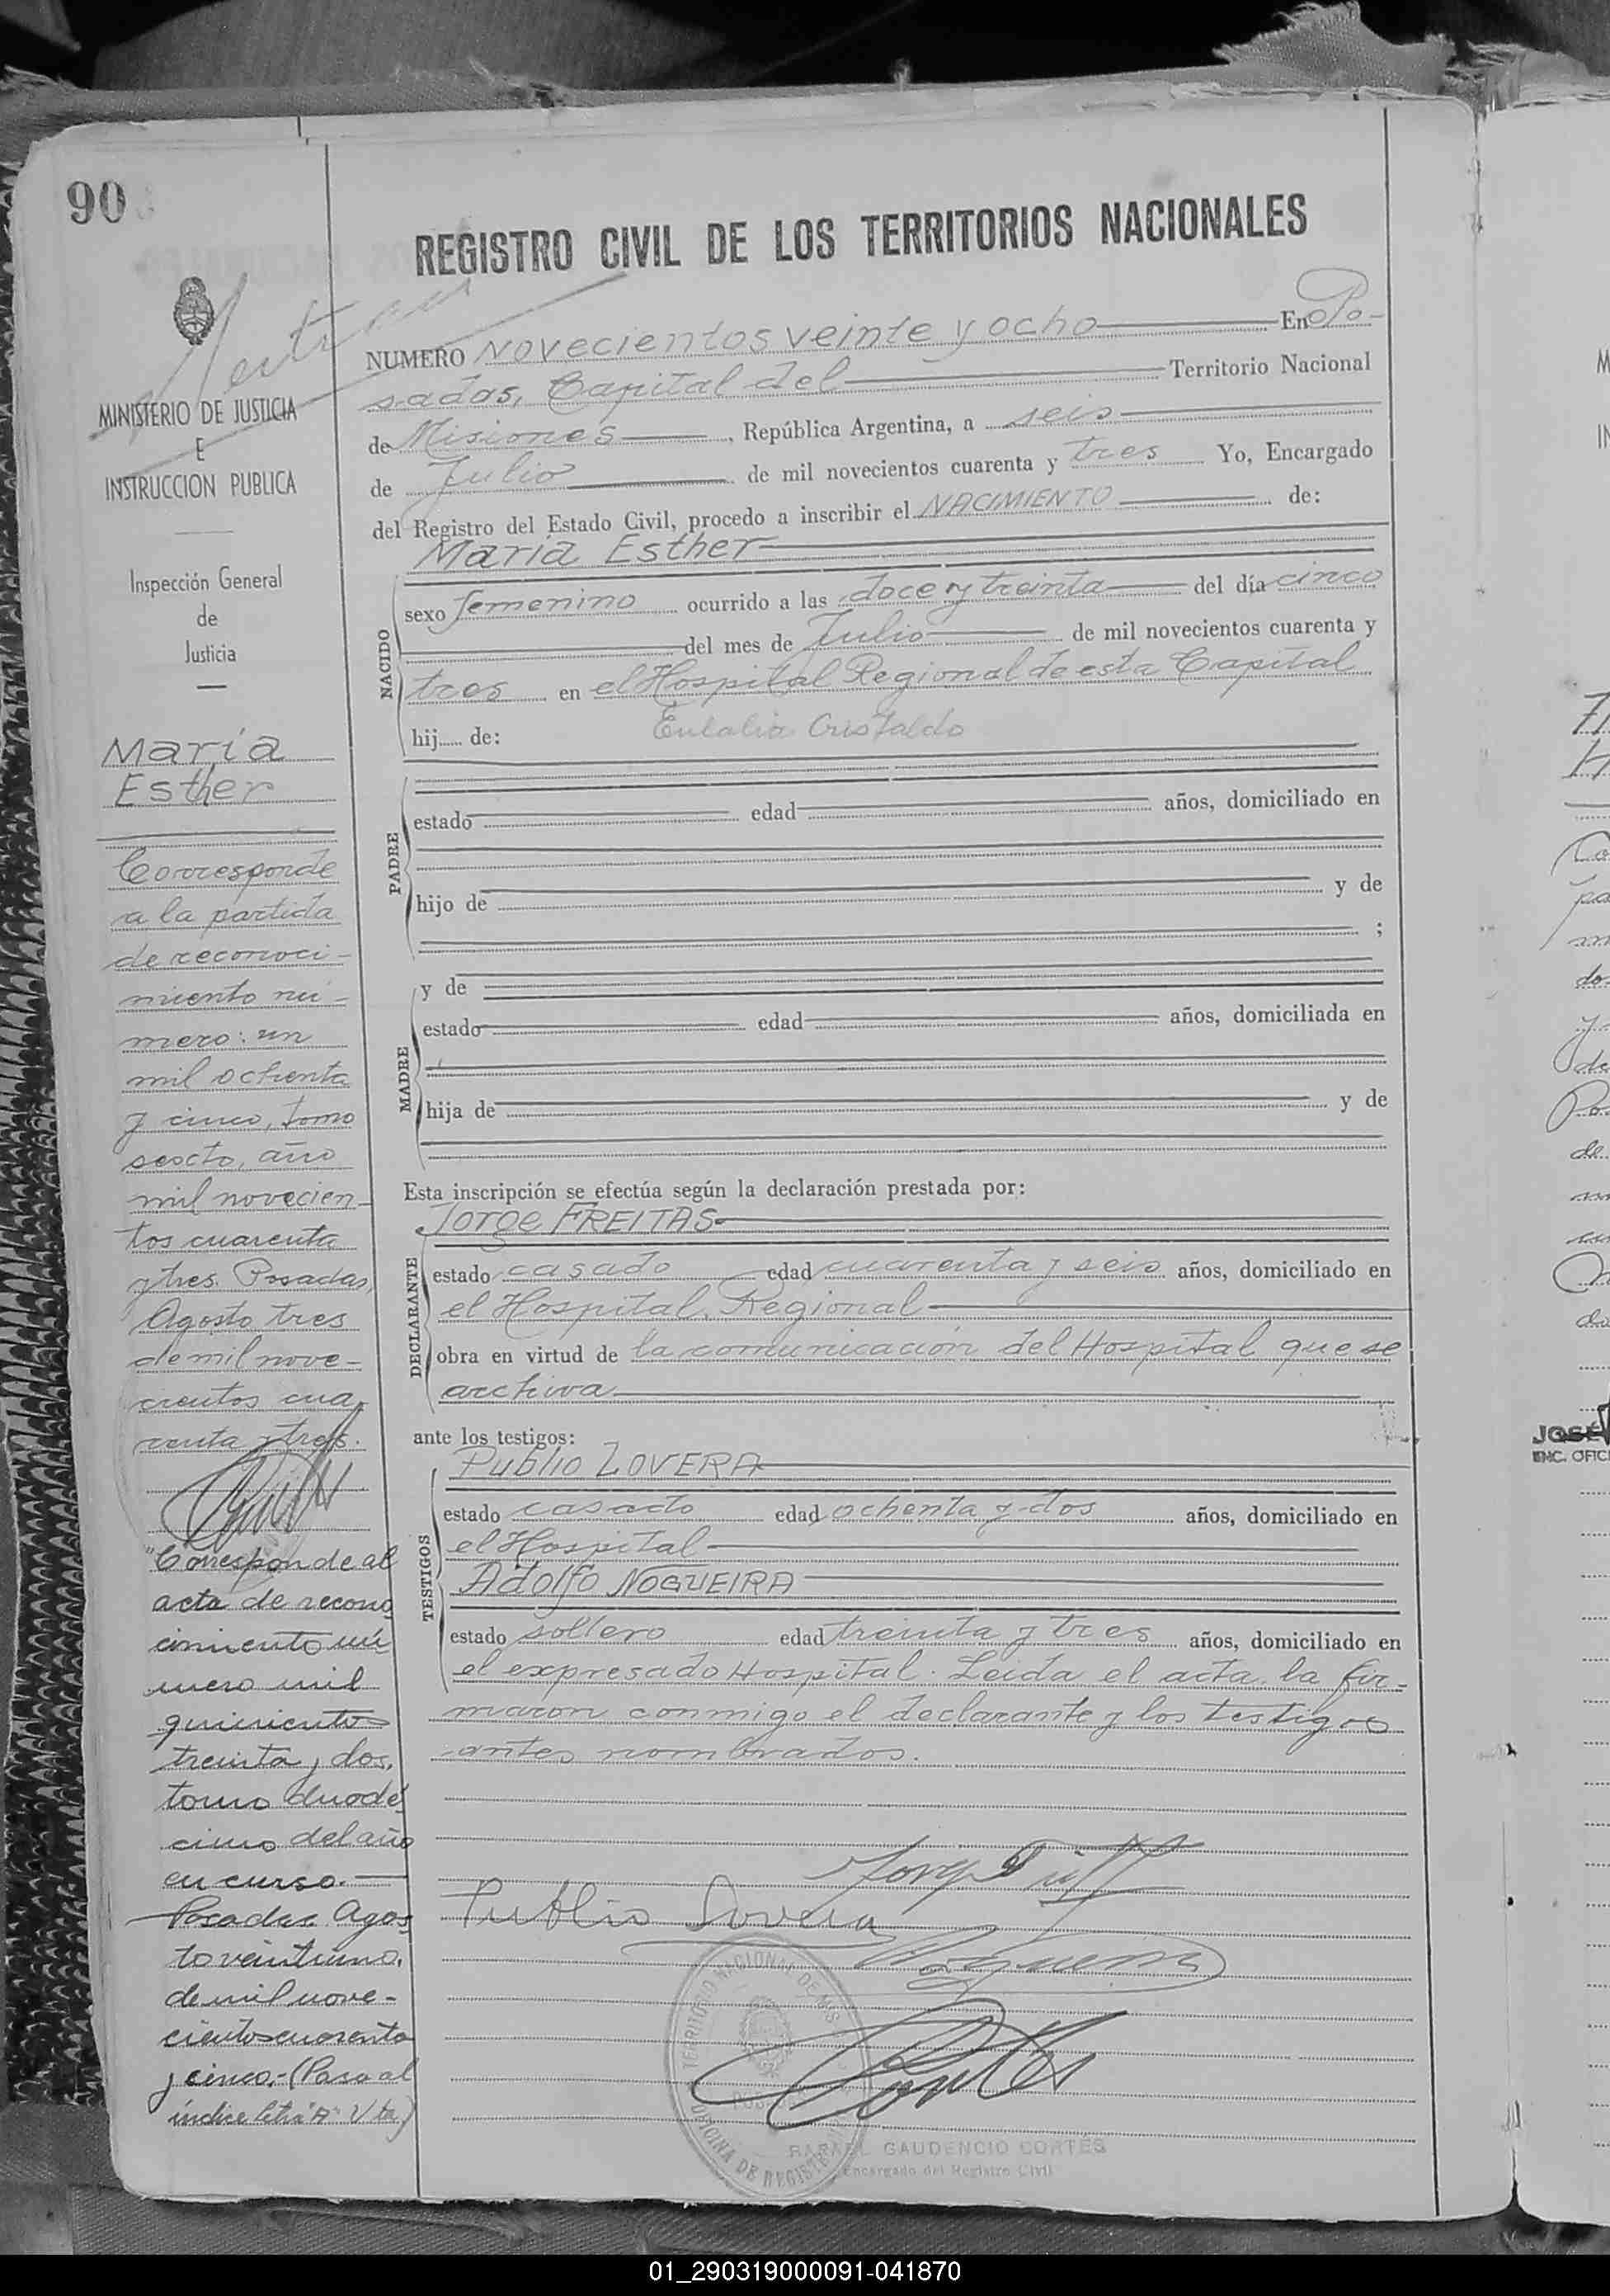 90
REGISTRO CIVIL DE LOS TERRITORIOS NACIONALES
NUMERO Novecientos veinte y ocho En Po-
sadas, Capital del Territorio Nacional
de Misiones, República Argentina, a seis
de Julio de mil novecientos cuarenta y tres Yo, Encargado
del Registro del Estado Civil, procedo a inscribir el NACIMIENTO de:
María Esther
NACIDO
sexo femenino ocurrido a las doce y treinta del día cinco
del mes de Julio de mil novecientos cuarenta y
tres en el Hospital Regional de esta Capital
hij..... de: Eulalia Cristaldo
PADRE
estado edad años, domiciliado en
hijo de y de
;
y de
MADRE
estado edad años, domiciliada en
hija de y de
Esta inscripción se efectúa según la declaración prestada por:
Jorge FREITAS
DECLARANTE
estado casado edad cuarenta y seis años, domiciliado en
el Hospital Regional
obra en virtud de la comunicación del Hospital que se
archiva
ante los testigos:
Publio LOVERA
TESTIGOS
estado casado edad ochenta y dos años, domiciliado en
el Hospital
Adolfo NOGUEIRA
estado soltero edad treinta y tres años, domiciliado en
el expresado Hospital. Leida el acta, la fir-
maron conmigo el declarante y los testigos
antes nombrados.
Publio Lovera
TERRITORIO NACIONAL DE MIS
POSADAS
OFICINA DE REGISTRO
RAFAEL GAUDENCIO CORTÉS
Encargado del Registro Civil
MINISTERIO DE JUSTICIA
E
INSTRUCCION PUBLICA
Inspección General
de
Justicia
María
Esther
Corresponde
a la partida
de reconoci-
miento nú-
mero: un
mil ochenta
y cinco, tomo
sexto, año
mil novecien-
tos cuarenta
y tres. Posadas,
Agosto tres
de mil nove-
cientos cua-
renta y tres.
"Corresponde al
acta de recono
cimiento nú
mero mil
quinientos
treinta y dos,
tomo duodé
cimo del año
en curso.-
Posadas Agos
to veintiuno,
de mil nove-
cientos cuarenta
y cinco.- (Pasa al
índice letra "A" Vta)
JOSÉ
ENC. OFIC
01_290319000091-041870